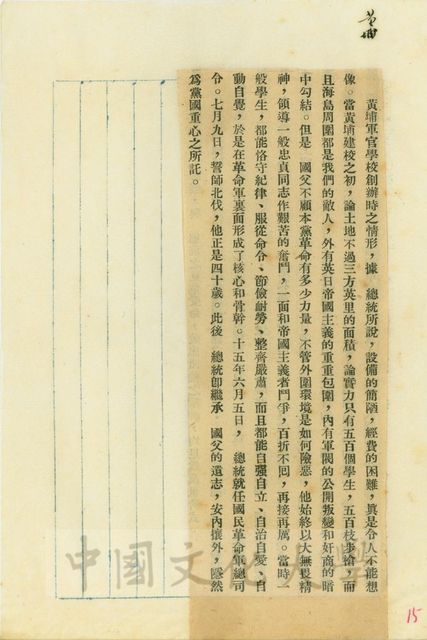 黃埔
黃埔軍官學校創辦時之情形，據　總統所說，設備的簡陋，經費的困難，眞是令人不能想
像。當黃埔建校之初，論土地不過三方英里的面積，論實力只有五百個學生，五百枝步槍，而
且海島周圍都是我們的敵人，外有英日帝國主義的重重包圍，內有軍閥的公開叛變和奸商的暗
中勾結。但是　國父不顧本黨革命有多少力量，不管外圍環境是如何險惡，他始終以大無畏精
神，領導一般忠貞同志作艱苦的奮鬥，一面和帝國主義者鬥爭，百折不回，再接再厲。當時一
般學生，都能恪守紀律、服從命令、節儉耐勞、整齊嚴肅，而且都能自强自立、自治自愛、自
動自覺，於是在革命軍裏面形成了核心和骨幹。十五年六月五日，　總統就任國民革命軍總司
令。七月九日，誓師北伐，他正是四十歲。此後　總統卽繼承　國父的遺志，安內攘外，隱然
爲黨國重心之所託。
中國文化大學
15